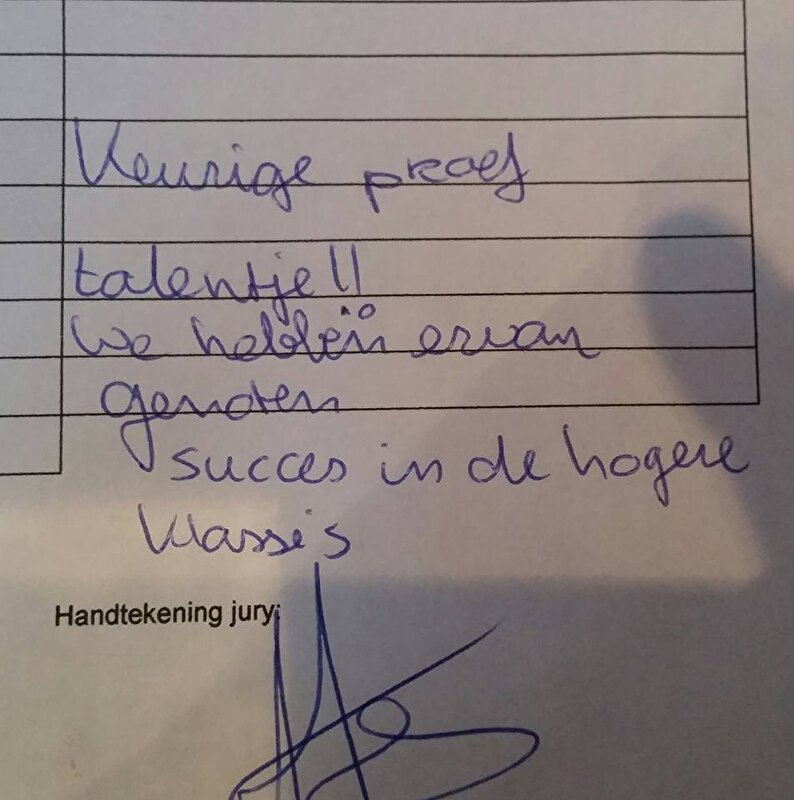 Keurige proef
talentje!!
We hebben ervan
genoten
succes in de hogere
klasse's
Handtekening jury: